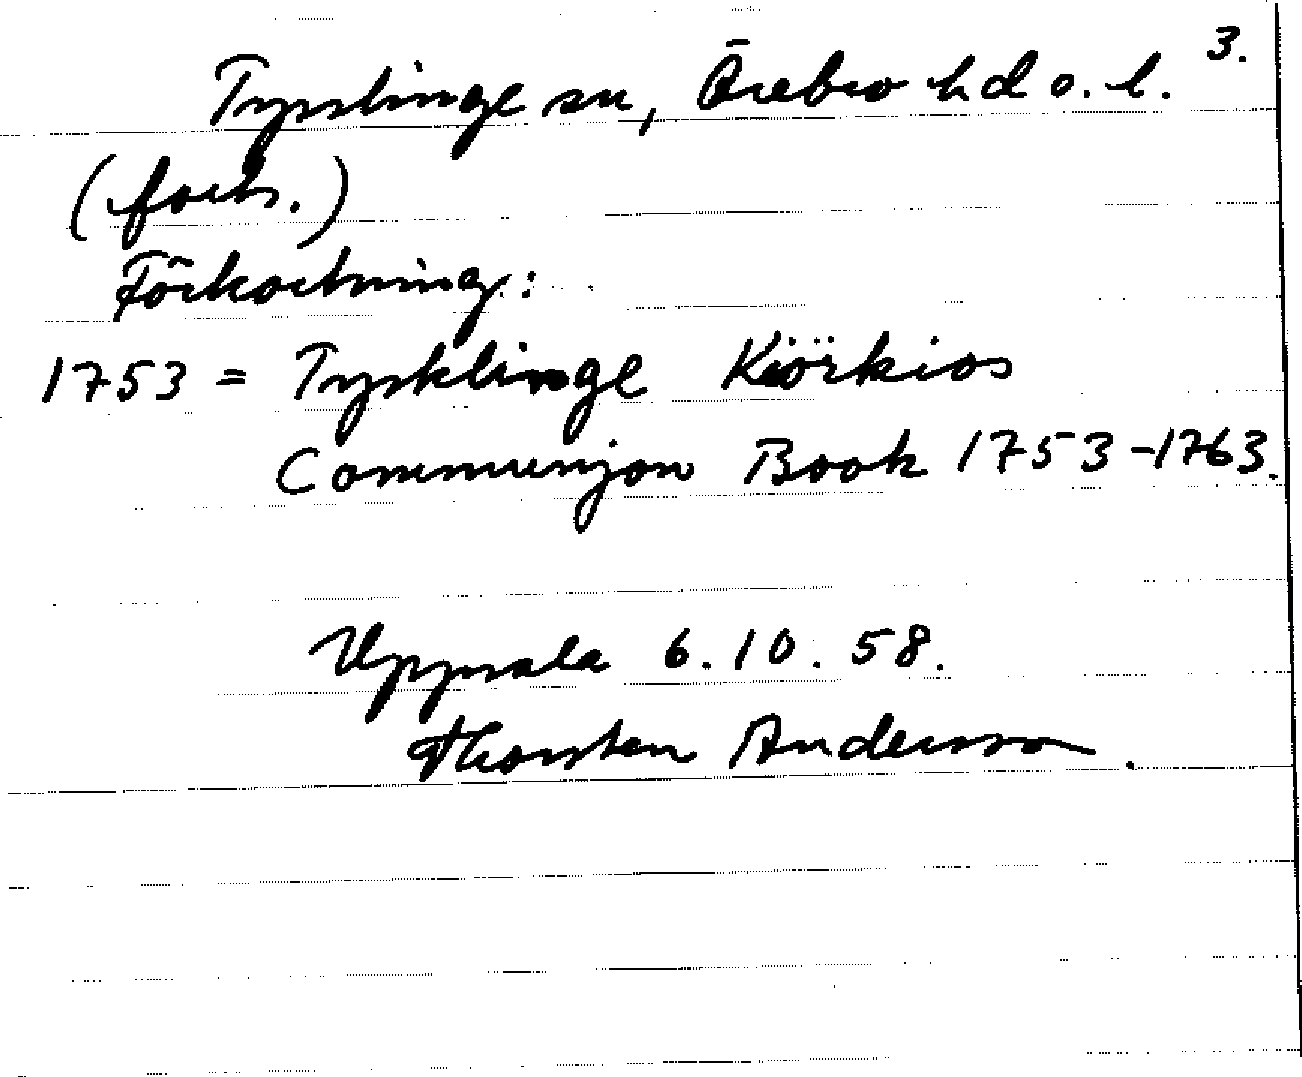 3.
Tysslinge sn, Örebro hd o. l.
(forts.)
Förkortning:
1753 = Tysklinge Kiörkios
Communjon Book 1753-1763.
Uppsala 6.10.58.
Thorsten Andersson.